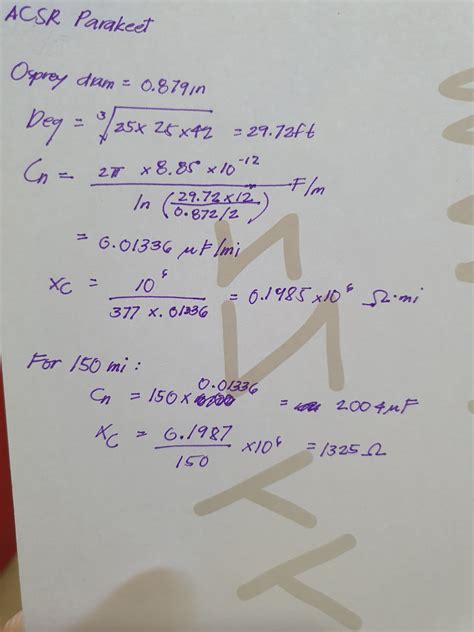 ACSR Parakeet
Osprey diam = 0.879in
Deq = ∛25x 25 x 42 = 29.72ft
Cn = 2π x 8.85 x 10^-12 / ln (29.72 x 12 / 0.872/2) F/m
= 0.01336 μF/mi
xc = 10^6 / 377 x .01336 = 0.1985 x10^6 Ω·mi
For 150 mi:
Cn = 150 x 0.01336 = 2004 μF
Xc = 0.1987 / 150 x10^6 = 1325 Ω